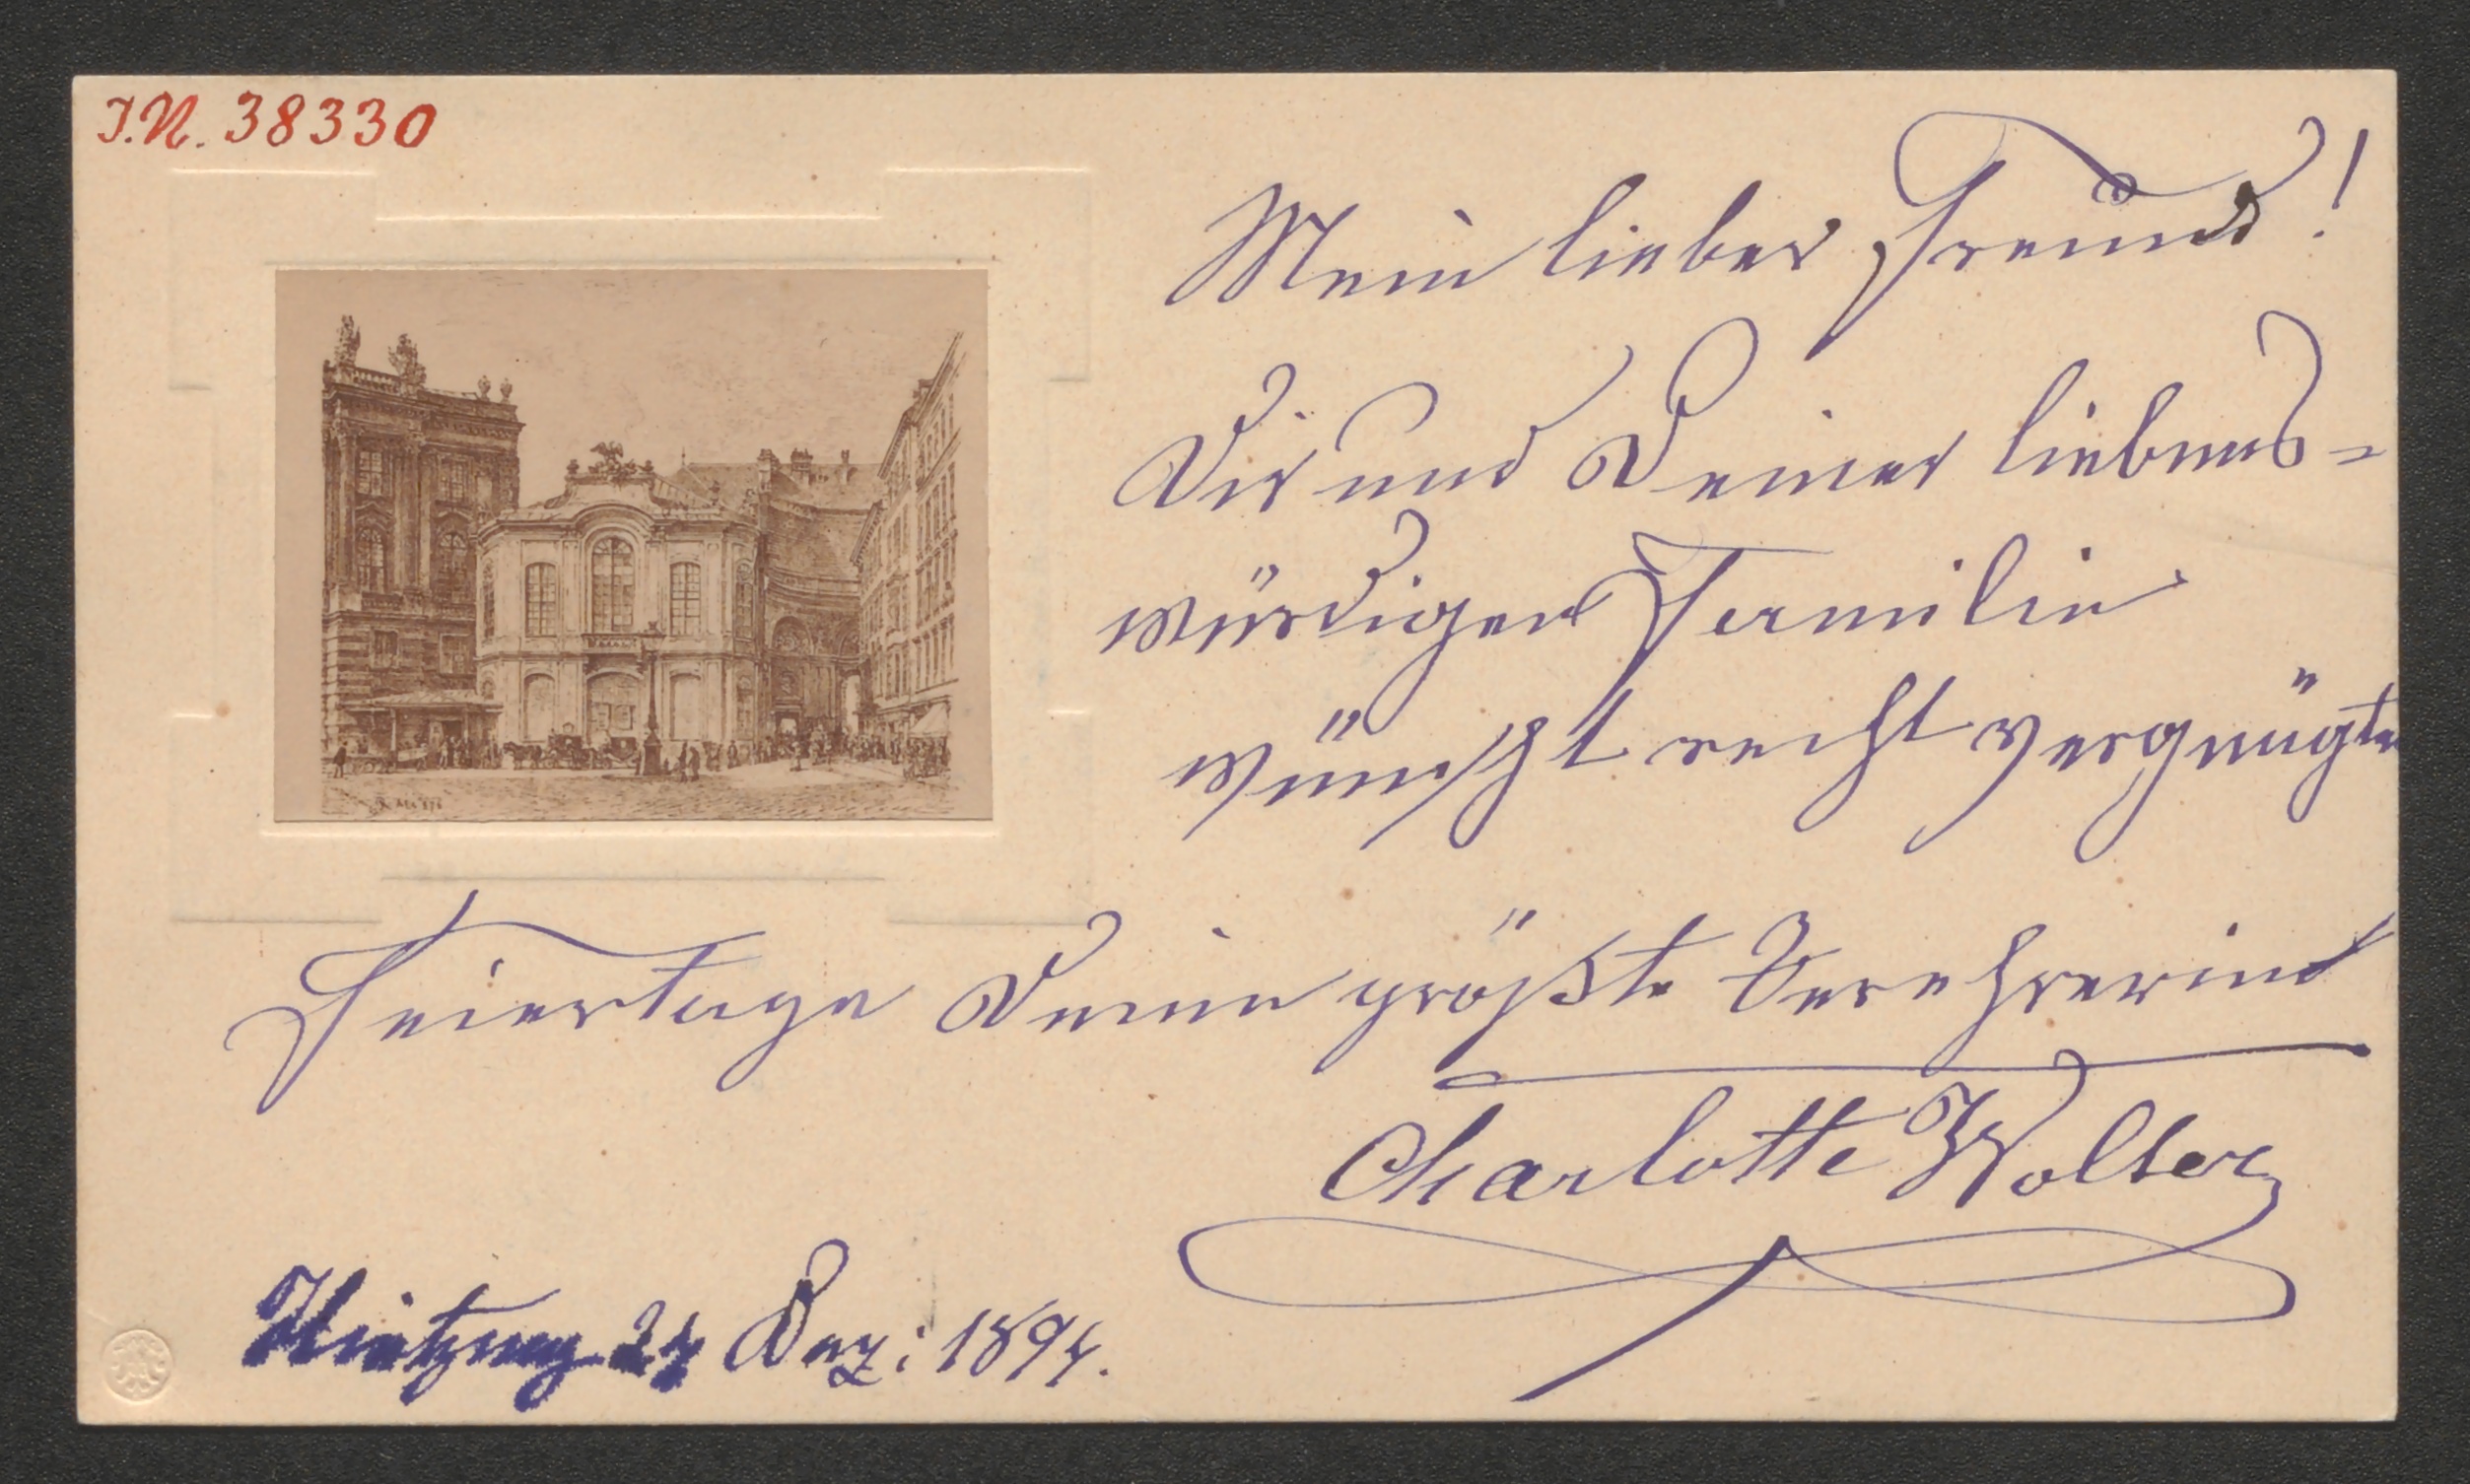 I.N. 38330
Mein lieber Freund!
Dir und Deiner liebens=
würdigen Familie
wünscht recht vergnügte
Feiertage Deine größte Verehrerin
Charlotte Wolter
Hietzing 24 Dez: 1894.